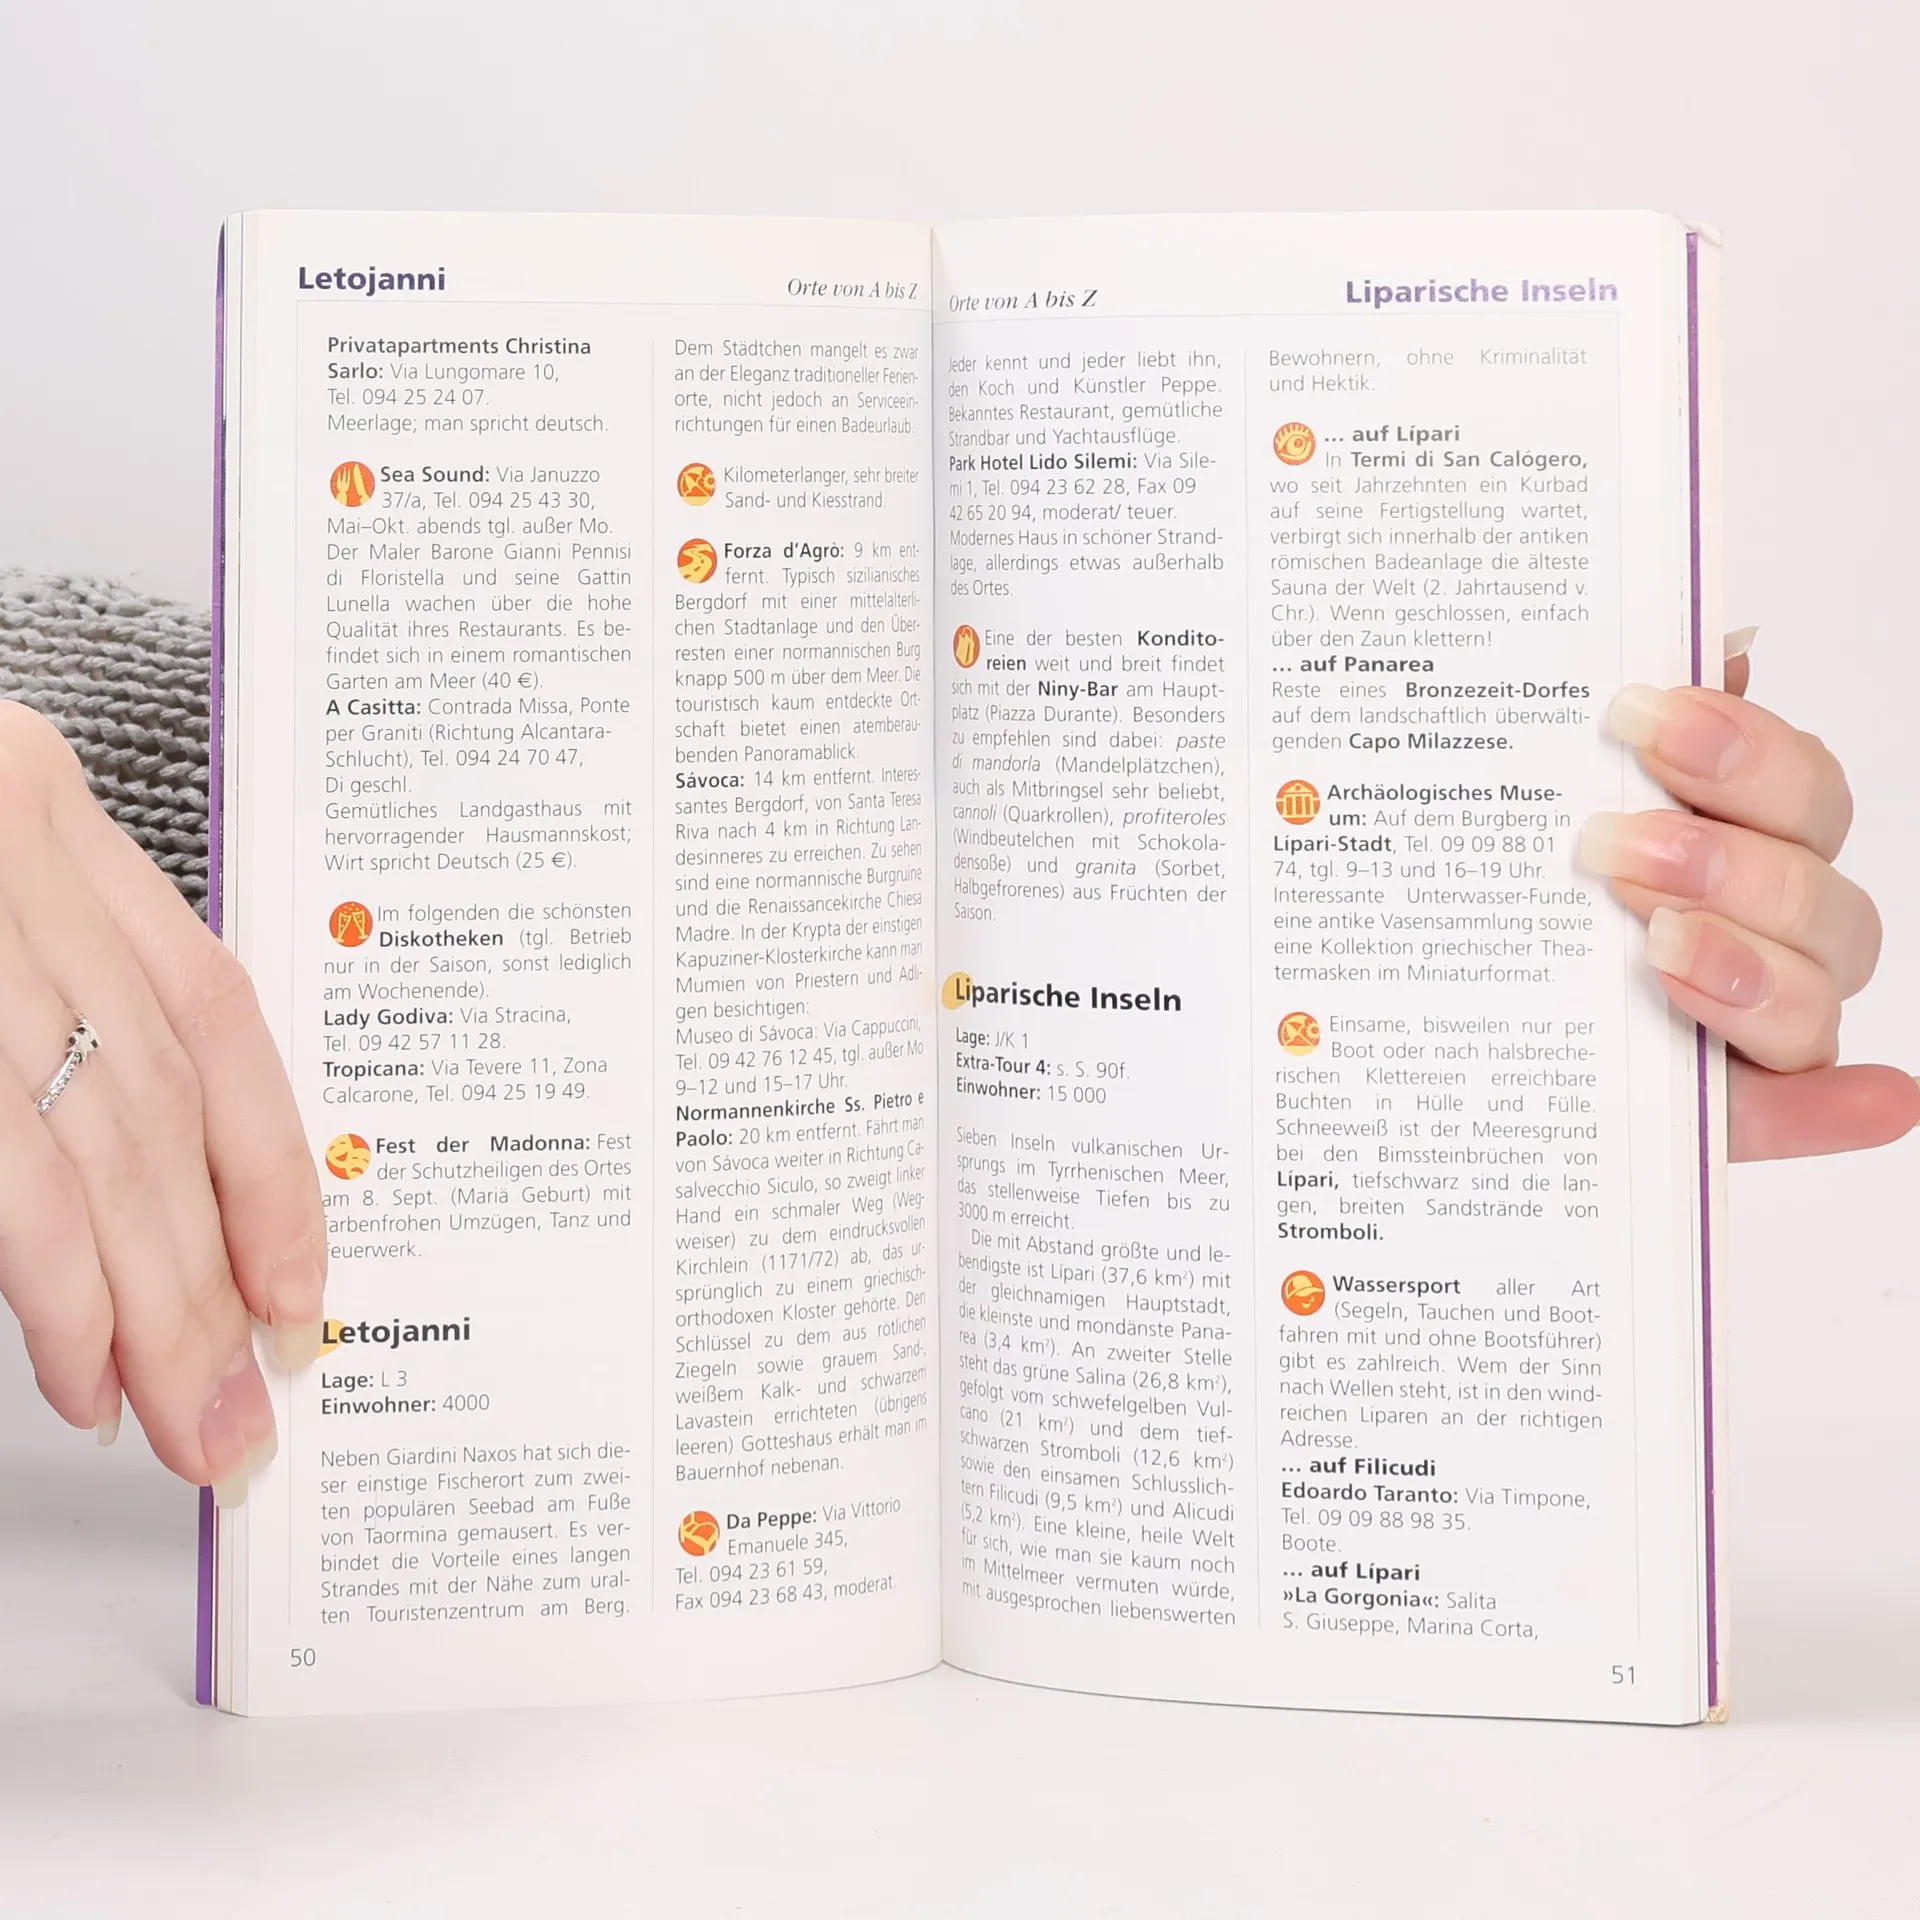 Letojanni
Orte von A bis Z
Privatapartments Christina
Sarlo: Via Lungomare 10,
Tel. 094 25 24 07.
Meerlage; man spricht deutsch.
Sea Sound: Via Januzzo
37/a, Tel. 094 25 43 30,
Mai–Okt. abends tgl. außer Mo.
Der Maler Barone Gianni Pennisi
di Floristella und seine Gattin
Lunella wachen über die hohe
Qualität ihres Restaurants. Es be-
findet sich in einem romantischen
Garten am Meer (40 €).
A Casitta: Contrada Missa, Ponte
per Graniti (Richtung Alcantara-
Schlucht), Tel. 094 24 70 47,
Di geschl.
Gemütliches Landgasthaus mit
hervorragender Hausmannskost;
Wirt spricht Deutsch (25 €).
Im folgenden die schönsten
Diskotheken (tgl. Betrieb
nur in der Saison, sonst lediglich
am Wochenende).
Lady Godiva: Via Stracina,
Tel. 09 42 57 11 28.
Tropicana: Via Tevere 11, Zona
Calcarone, Tel. 094 25 19 49.
Fest der Madonna: Fest
der Schutzheiligen des Ortes
am 8. Sept. (Mariä Geburt) mit
farbenfrohen Umzügen, Tanz und
Feuerwerk.
Letojanni
Lage: L 3
Einwohner: 4000
Neben Giardini Naxos hat sich die-
ser einstige Fischerort zum zwei-
ten populären Seebad am Fuße
von Taormina gemausert. Es ver-
bindet die Vorteile eines langen
Strandes mit der Nähe zum ural-
ten Touristenzentrum am Berg.
50
Dem Städtchen mangelt es zwar
an der Eleganz traditioneller Ferien-
orte, nicht jedoch an Serviceein-
richtungen für einen Badeurlaub.
Kilometerlanger, sehr breiter
Sand- und Kiesstrand.
Forza d'Agrò: 9 km ent-
fernt. Typisch sizilianisches
Bergdorf mit einer mittelalterli-
chen Stadtanlage und den Über-
resten einer normannischen Burg
knapp 500 m über dem Meer. Die
touristisch kaum entdeckte Ort-
schaft bietet einen atemberau-
benden Panoramablick.
Sávoca: 14 km entfernt. Interes-
santes Bergdorf, von Santa Teresa
Riva nach 4 km in Richtung Lan-
desinneres zu erreichen. Zu sehen
sind eine normannische Burgruine
und die Renaissancekirche Chiesa
Madre. In der Krypta der einstigen
Kapuziner-Klosterkirche kann man
Mumien von Priestern und Adli-
gen besichtigen:
Museo di Sávoca: Via Cappuccini,
Tel. 09 42 76 12 45, tgl. außer Mo
9–12 und 15–17 Uhr.
Normannenkirche Ss. Pietro e
Paolo: 20 km entfernt. Fährt man
von Sávoca weiter in Richtung Ca-
salvecchio Siculo, so zweigt linker
Hand ein schmaler Weg (Weg-
weiser) zu dem eindrucksvollen
Kirchlein (1171/72) ab, das ur-
sprünglich zu einem griechisch-
orthodoxen Kloster gehörte. Den
Schlüssel zu dem aus rötlichen
Ziegeln sowie grauem Sand-,
weißem Kalk- und schwarzem
Lavastein errichteten (übrigens
leeren) Gotteshaus erhält man im
Bauernhof nebenan.
Da Peppe: Via Vittorio
Emanuele 345,
Tel. 094 23 61 59,
Fax 094 23 68 43, moderat.
Orte von A bis Z
Liparische Inseln
Jeder kennt und jeder liebt ihn,
den Koch und Künstler Peppe.
Bekanntes Restaurant, gemütliche
Strandbar und Yachtausflüge.
Park Hotel Lido Silemi: Via Sile-
mi 1, Tel. 094 23 62 28, Fax 09
42 65 20 94, moderat/ teuer.
Modernes Haus in schöner Strand-
lage, allerdings etwas außerhalb
des Ortes.
Eine der besten Kondito-
reien weit und breit findet
sich mit der Niny-Bar am Haupt-
platz (Piazza Durante). Besonders
zu empfehlen sind dabei: paste
di mandorla (Mandelplätzchen),
auch als Mitbringsel sehr beliebt,
cannoli (Quarkrollen), profiteroles
(Windbeutelchen mit Schokola-
densoße) und granita (Sorbet,
Halbgefrorenes) aus Früchten der
Saison.
Liparische Inseln
Lage: J/K 1
Extra-Tour 4: s. S. 90f.
Einwohner: 15 000
Sieben Inseln vulkanischen Ur-
sprungs im Tyrrhenischen Meer,
das stellenweise Tiefen bis zu
3000 m erreicht.
Die mit Abstand größte und le-
bendigste ist Lípari (37,6 km²) mit
der gleichnamigen Hauptstadt,
die kleinste und mondänste Pana-
rea (3,4 km²). An zweiter Stelle
steht das grüne Salina (26,8 km²),
gefolgt vom schwefelgelben Vul-
cano (21 km²) und dem tief-
schwarzen Stromboli (12,6 km²)
sowie den einsamen Schlusslich-
tern Filicudi (9,5 km²) und Alicudi
(5,2 km²). Eine kleine, heile Welt
für sich, wie man sie kaum noch
im Mittelmeer vermuten würde,
mit ausgesprochen liebenswerten
Bewohnern, ohne Kriminalität
und Hektik.
... auf Lípari
In Termi di San Calógero,
wo seit Jahrzehnten ein Kurbad
auf seine Fertigstellung wartet,
verbirgt sich innerhalb der antiken
römischen Badeanlage die älteste
Sauna der Welt (2. Jahrtausend v.
Chr.). Wenn geschlossen, einfach
über den Zaun klettern!
... auf Panarea
Reste eines Bronzezeit-Dorfes
auf dem landschaftlich überwälti-
genden Capo Milazzese.
Archäologisches Muse-
um: Auf dem Burgberg in
Lípari-Stadt, Tel. 09 09 88 01
74, tgl. 9–13 und 16–19 Uhr.
Interessante Unterwasser-Funde,
eine antike Vasensammlung sowie
eine Kollektion griechischer Thea-
termasken im Miniaturformat.
Einsame, bisweilen nur per
Boot oder nach halsbreche-
rischen Klettereien erreichbare
Buchten in Hülle und Fülle.
Schneeweiß ist der Meeresgrund
bei den Bimssteinbrüchen von
Lípari, tiefschwarz sind die lan-
gen, breiten Sandstrände von
Stromboli.
Wassersport aller Art
(Segeln, Tauchen und Boot-
fahren mit und ohne Bootsführer)
gibt es zahlreich. Wem der Sinn
nach Wellen steht, ist in den wind-
reichen Liparen an der richtigen
Adresse.
... auf Filicudi
Edoardo Taranto: Via Timpone,
Tel. 09 09 88 98 35.
Boote.
... auf Lípari
»La Gorgonia«: Salita
S. Giuseppe, Marina Corta,
51